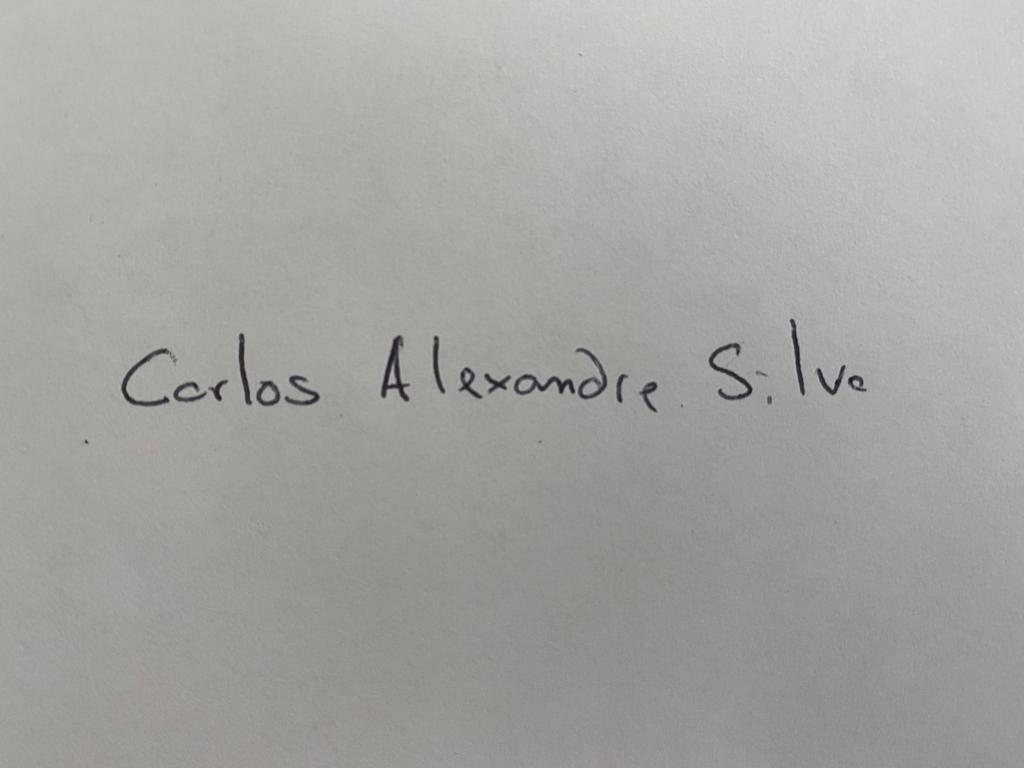 Carlos Alexandre Silva